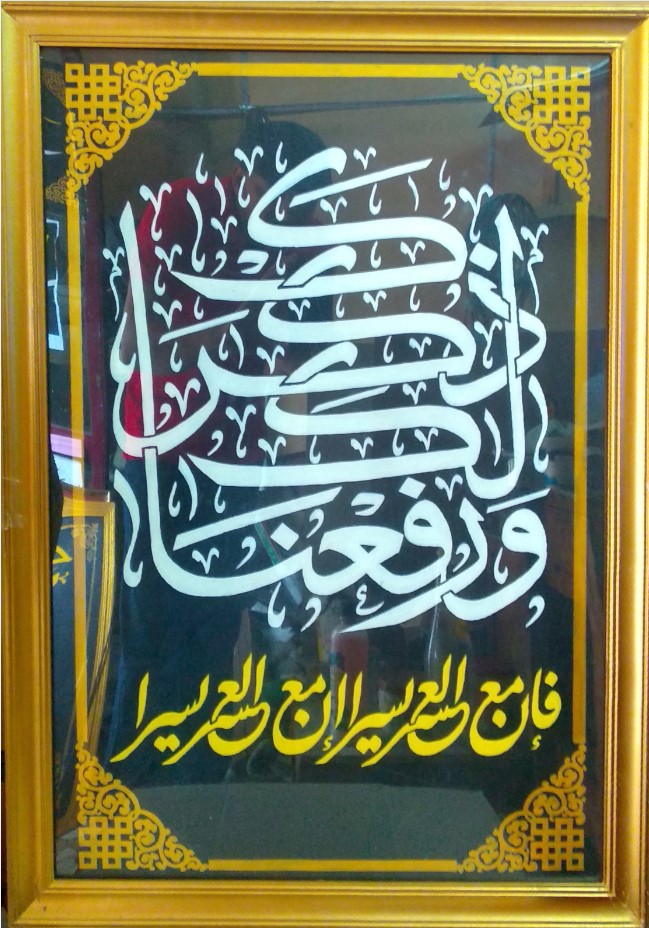 ورفعنا لك ذكرك
فإن مع العسر يسرا إن مع العسر يسرا